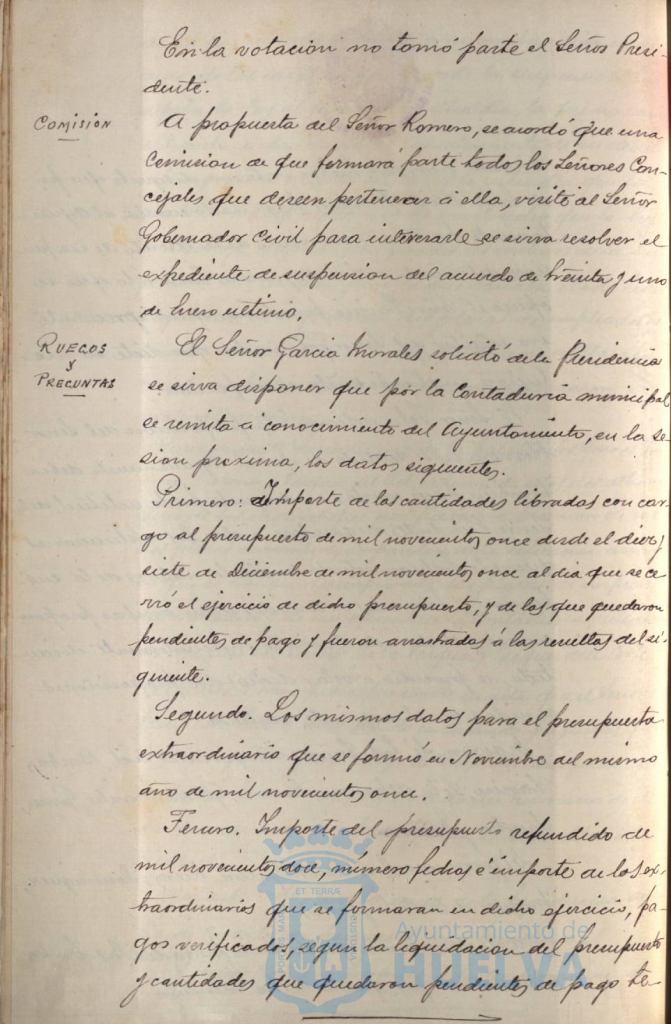 En la votacion no tomó parte el Señor Presi-
dente.
COMISIÓN
A propuesta del Señor Romero, se acordó que una
Comision de que formará parte todos los Señores Con-
cejales que deseen pertenecer á ella, visite al Señor
Gobernador Civil para interesarle se sirva resolver el
expediente de suspension del acuerdo de treinta y uno
de Enero ultimo.
RUEGOS
y
PREGUNTAS
El Señor Garcia Morales solicitó de la Presidencia
se sirva disponer que por la Contaduria municipal
se remita á conocimiento del Ayuntamiento, en la se-
sion proxima, los datos siguientes.
Primero: Importe de las cantidades libradas con car-
go al presupuesto de mil novecientos once desde el diez y
siete de Diciembre de mil novecientos once al dia que se ce-
rró el ejercicio de dicho presupuesto, y de las que quedaron
pendientes de pago y fueron arrastradas á las resultas del si-
guiente.
Segundo. Los mismos datos para el presupuesto
extraordinario que se formó en Noviembre del mismo
año de mil novecientos once.
Tercero. Importe del presupuesto refundido de
mil novecientos doce, número fechas é importe de los ex-
traordinarios que se formaran en dicho ejercicio, pa-
gos verificados, segun la liquidacion del presupuesto
y cantidades que quedaron pendientes de pago te-
ET TERRÆ
Ayuntamiento de
HUELVA